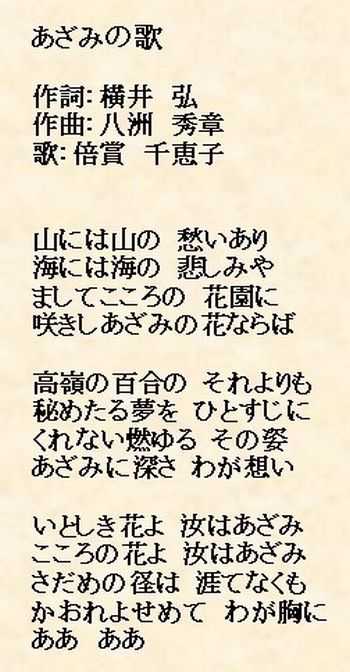 あざみの歌
作詞：横井　弘
作曲：八洲　秀章
歌：倍賞　千恵子
山には山の　愁いあり
海には海の　悲しみや
ましてこころの　花園に
咲きしあざみの花ならば
高嶺の百合の　それよりも
秘めたる夢を　ひとすじに
くれない燃ゆる　その姿
あざみに深さ　わが想い
いとしき花よ　汝はあざみ
こころの花よ　汝はあざみ
さだめの径は　涯てなくも
かおれよせめて　わが胸に
ああ　ああ